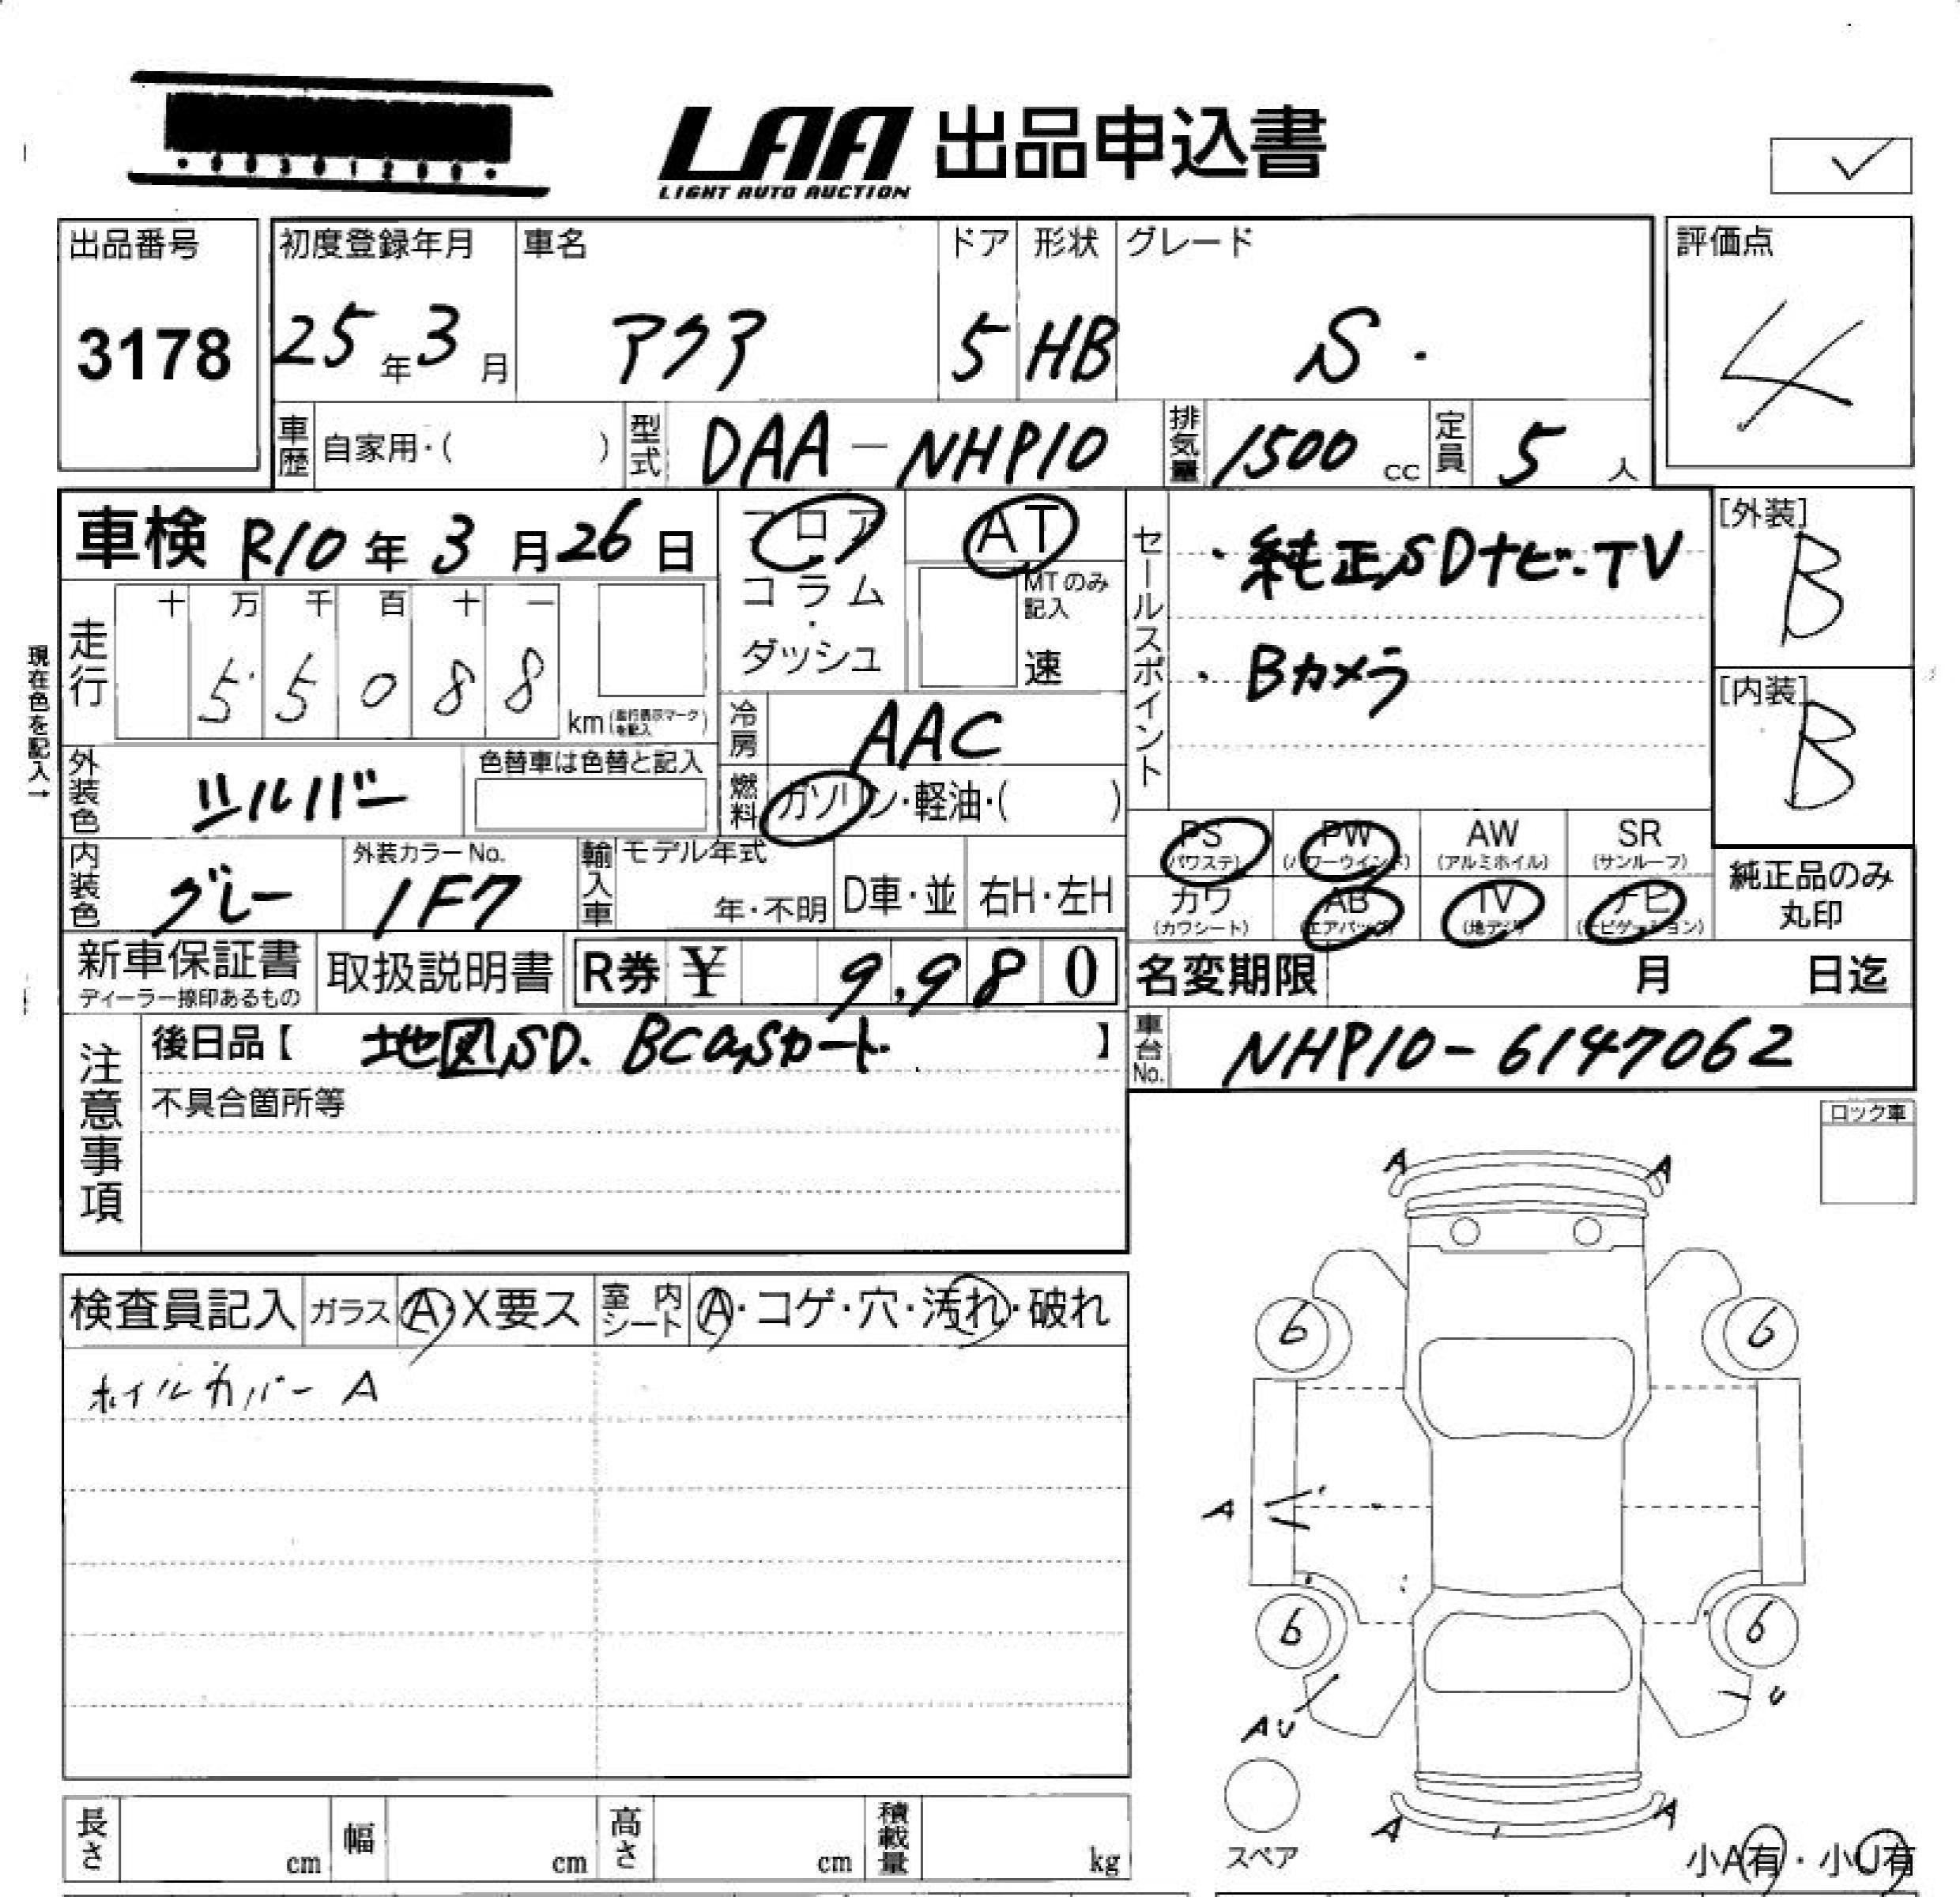 LAA 出品申込書
LIGHT AUTO AUCTION
出品番号
3178
初度登録年月
25年3月
車名
アクア
ドア
5
形状
HB
グレード
S.
評価点
4
車歴 自家用・( )
型式 DAA-NHP10
排気量 1500 cc
定員 5 人
車検 R10年3月26日
フロア・
コラム・
ダッシュ
AT
MTのみ
記入
速
セールスポイント
・純正SDナビ・TV
・Bカメラ
[外装]
B
[内装]
B
現在色を記入→
走行
十 万 千 百 十 一
5 5 0 8 8
km (走行表示マークを記入)
冷房 AAC
燃料 ガソリン・軽油・( )
外装色 シルバー
色替車は色替と記入
内装色 グレー
外装カラーNo.
1F7
輸入車
モデル年式
年・不明
D車・並
右H・左H
PS
(パワステ)
PW
(パワーウインド)
AW
(アルミホイル)
SR
(サンルーフ)
カワ
(カワシート)
AB
(エアバック)
TV
(地デジ)
ナビ
(ナビゲーション)
純正品のみ
丸印
新車保証書
ディーラー捺印あるもの
取扱説明書
R券 ¥ 9,980
名変期限 月 日迄
車台No. NHP10-6147062
注意事項
後日品【 地図SD、BCasカード 】
不具合箇所等
ロック車
検査員記入
ガラス A・X要ス
室内シート A・コゲ・穴・汚れ・破れ
ホイルカバー A
A A
6 6
A
6 6
AU U
A A
スペア
小A有・小U有
長さ cm
幅 cm
高さ cm
積載量 kg